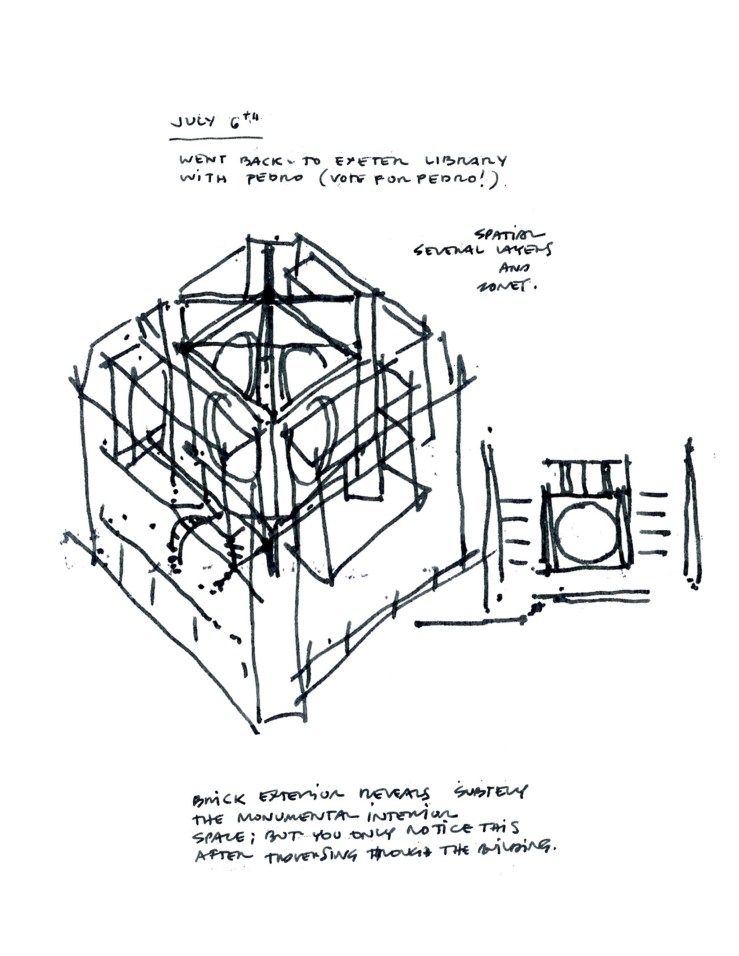 JULY 6TH
WENT BACK TO EXETER LIBRARY
WITH PEDRO (VOTE FOR PEDRO!).
SPATIAL
SEVERAL LAYERS
AND
ZONET.
BRICK EXTERIOR REVEALS SUBTELY
THE MONUMENTAL INTERIOR
SPACE; BUT YOU ONLY NOTICE THIS
AFTER TRAVERSING THROUGH THE BUILDING.